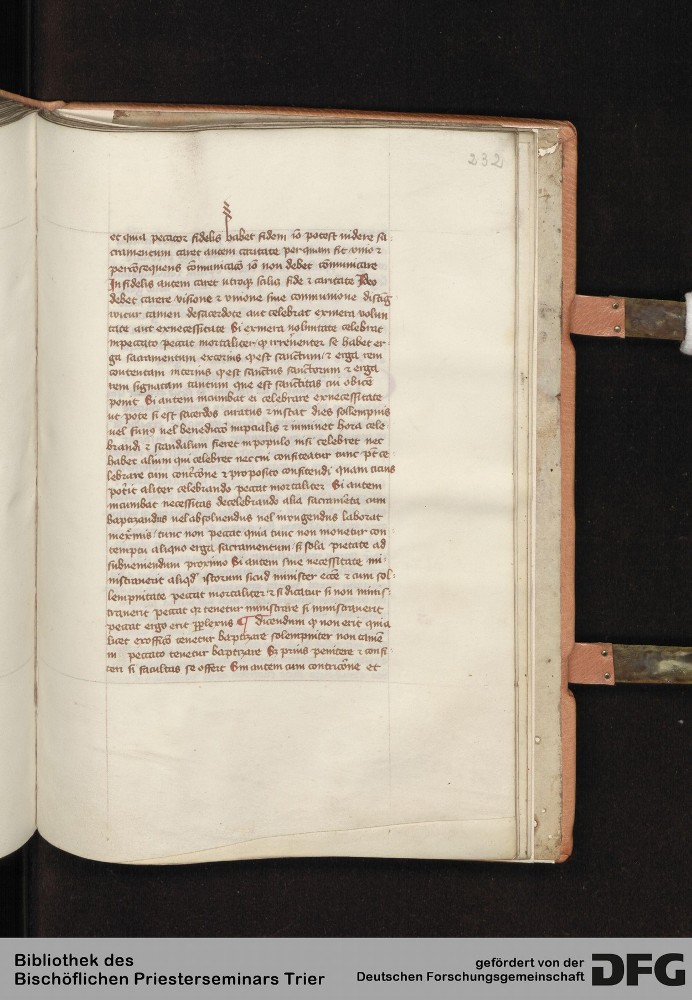 232
et quia peccator fidelis habet fidem iō potest uidere sa
cramentum caret autem caritate per quam fit vnio ⁊
per cōsequens cōmunicacō iō non debet cōmunicare
Infidelis autem caret utroque scilicet fide ⁊ caritate Ideo
debet carere visione ⁊ vnione siue communione distig
witur tamen de sacerdote aut celebrat ex mera volun
tate aut ex necessitate Si ex mera uoluntate celebrat
in peccato peccat mortaliter quia irreuerenter se habet er
ga sacramentum exterius quod est sanctum ⁊ erga rem
contentam interius quod est sanctus sanctorum ⁊ erga
rem signatam tantum que est sanctitas cui obicē
ponit Si autem incumbat ei celebrare ex necessitate
ut pote si est sacerdos curatus ⁊ instat dies sollempnis
uel funus uel benedictō nupcialis ⁊ iminet hora cele
brandi ⁊ scandalum fieret in populo nisi celebret nec
habet alium qui celebret nec cui confiteatur tunc pōt ce
lebrare cum contricōne ⁊ proposito confitendi quam cicius
poterit aliter celebrando peccat mortaliter Si autem
incumbat necessitas de celebrando alia sacramēta cum
baptizandus uel absoluendus uel inungendus laborat
in extremis tunc non peccat quia tunc non mouetur con
temptu aliquo erga sacramentum sed sola pietate ad
subueniendum proximo Si autem sine necessitate mi
nistrauerit aliquod istorum sicud minister ecclesie ⁊ cum sol
lempnitate peccat mortaliter ⁊ si dicatur si non minis
trauerit peccat quia tenetur ministrare si ministrauerit
peccat ergo erit perplexus ¶ dicendum quod non erit quia
licet ex officō tenetur baptizare solempniter non tamē
in peccato tenetur baptizare Sed prius penitere ⁊ confi
teri si facultas se offert Sin autem cum contricōne et
Bibliothek des
Bischöflichen Priesterseminars Trier
gefördert von der
Deutschen Forschungsgemeinschaft
DFG